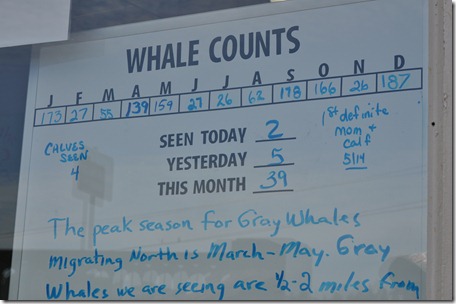 WHALE COUNTS
J F M A M J J A S O N D
173 27 55 139 159 27 26 62 178 166 26 187
SEEN TODAY 2
YESTERDAY 5
THIS MONTH 39
CALVES
SEEN
4
1st definite
mom +
calf
5/14
The peak season for Gray Whales
migrating North is March-May. Gray
Whales we are seeing are ½-2 miles from